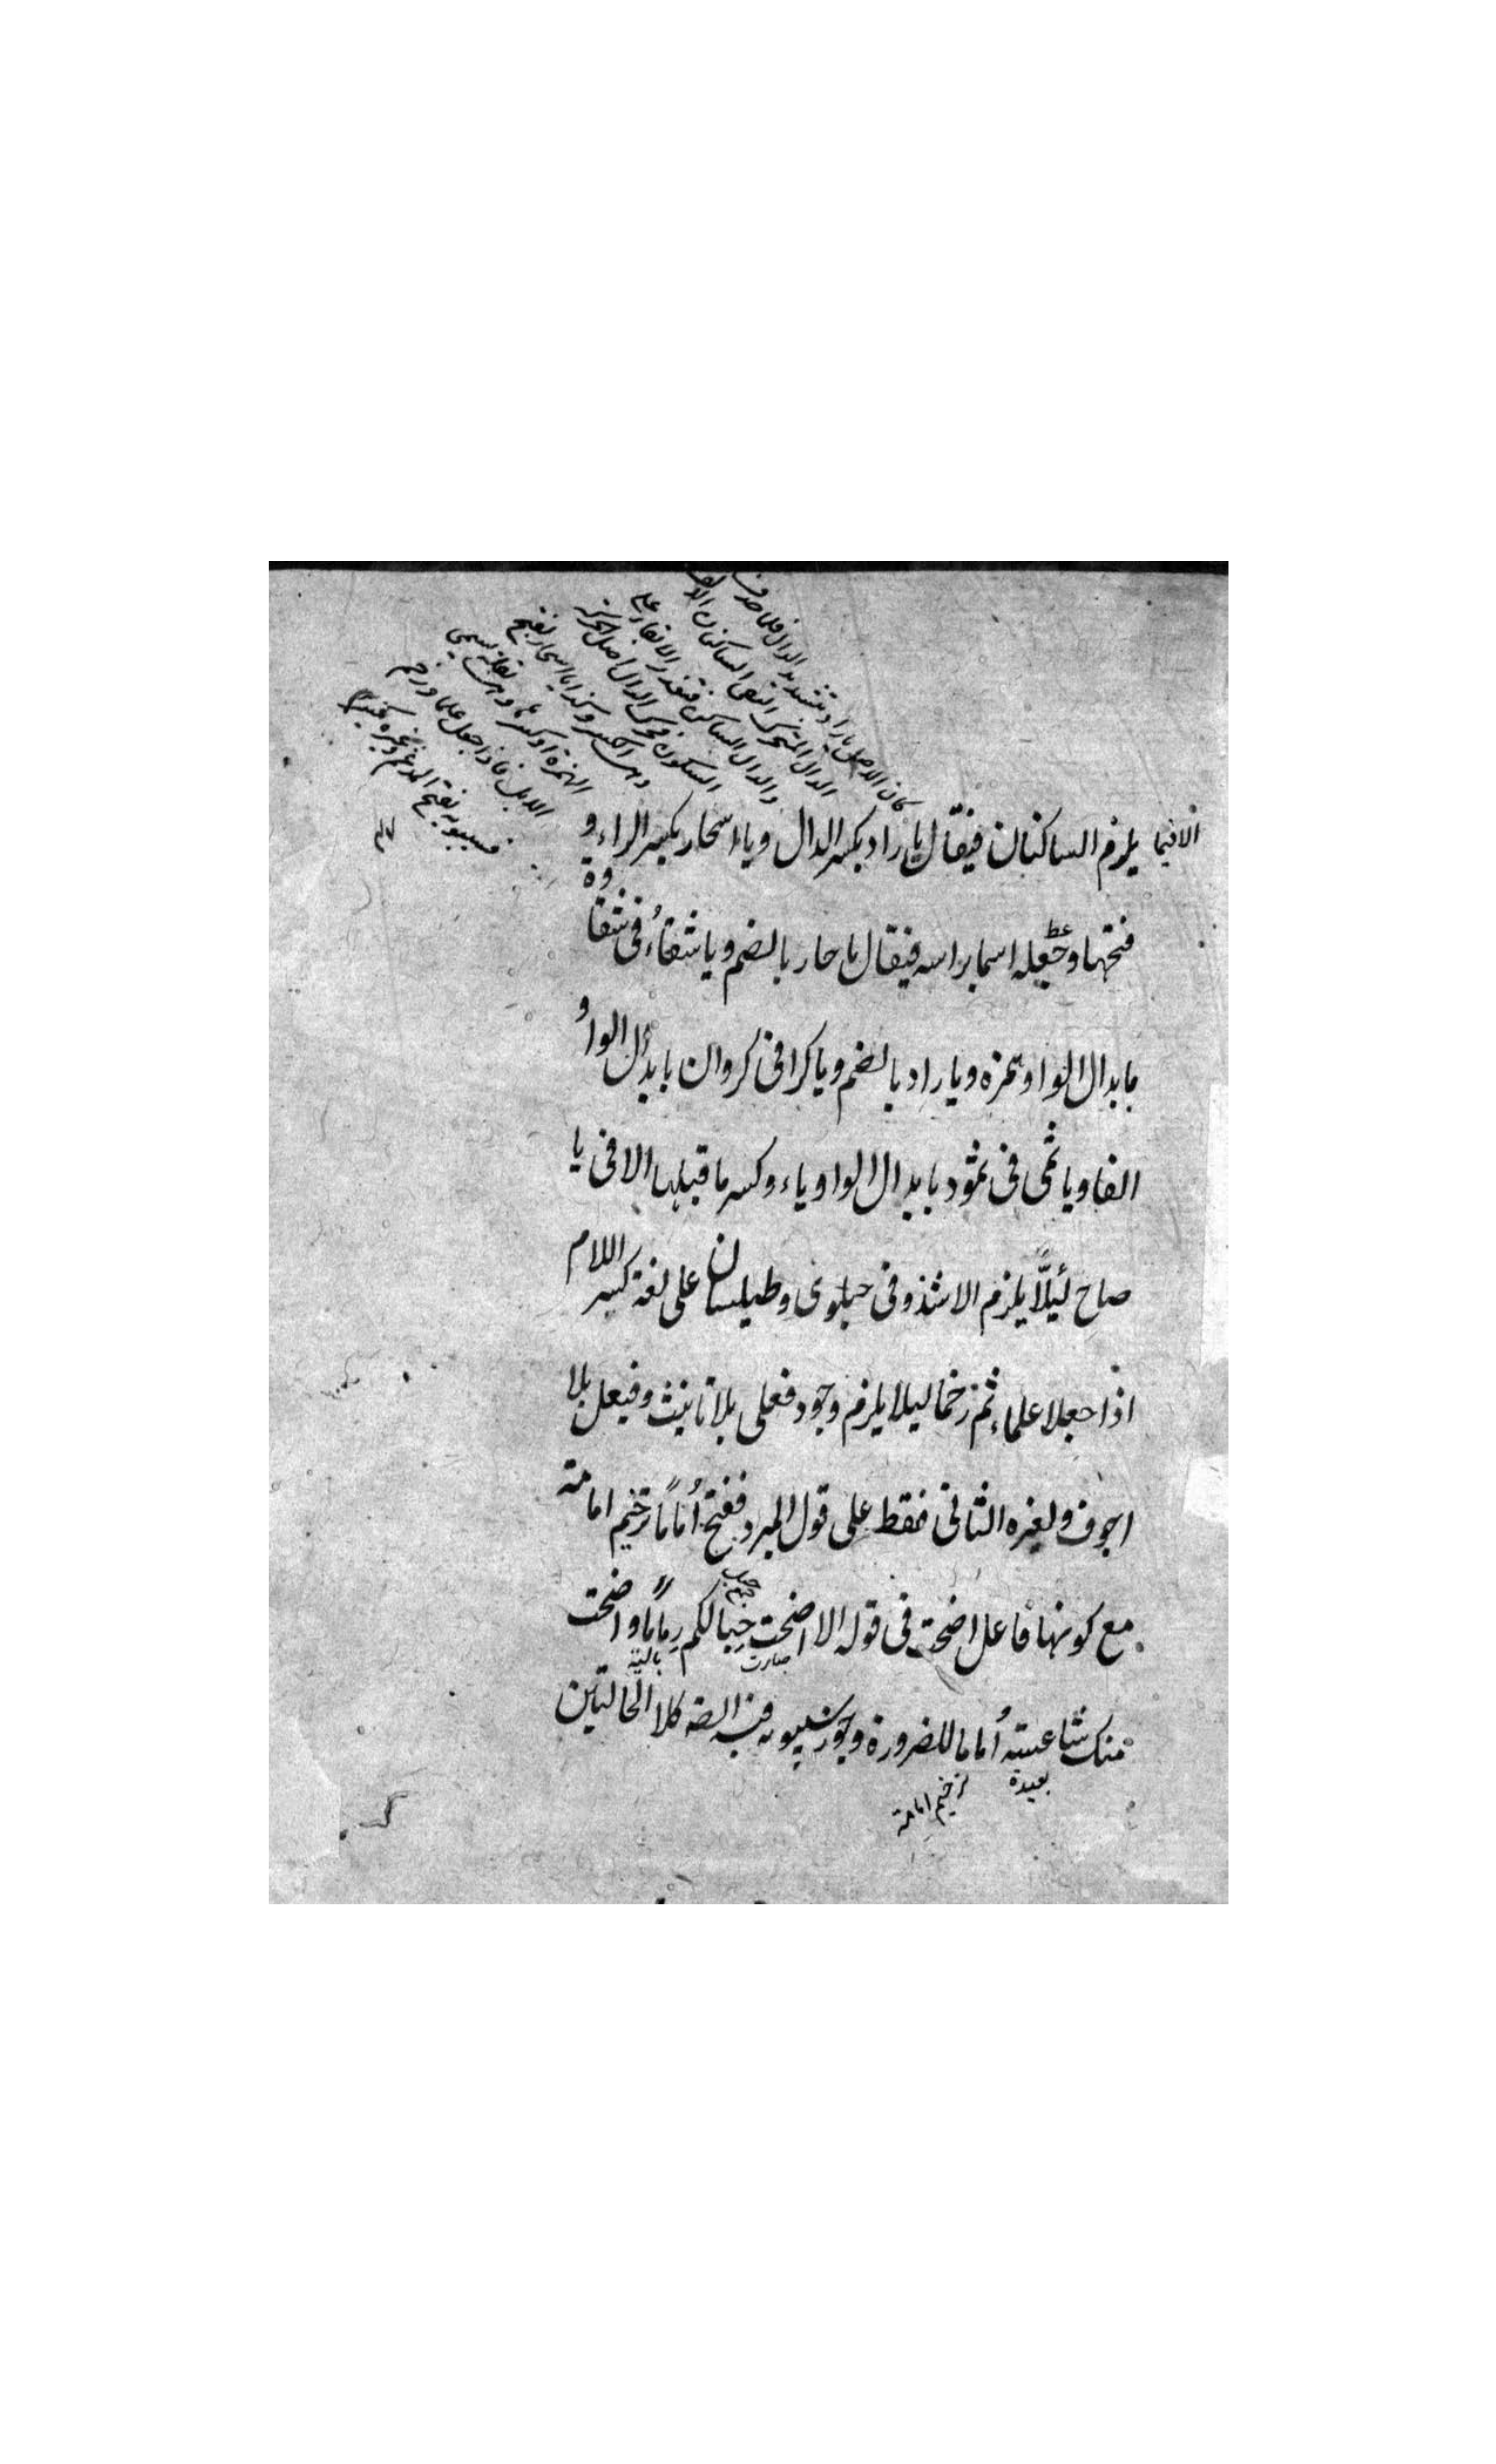 كان الاصل يا راد بتشديد الدال فلما حذف
الدال المتحرك التقى الساكنان الالف
والدال الساكن فتعذر الابقاء على
السكون فحرك الدال باصل الحركة
وهى الكسر وكذا يا اسحار بفتح
الهمزة او كسرها وهى بقلة يسمى
الابل فاذا جعل علما ورخم
فسيبويه بفتح
الافيما يلزم الساكنان فيقال يا راد بكسر الدال ويا اسحار بكسر الراء و
فتحها وجعله اسما براسه فيقال يا حار بالضم ويا شقاءُ فى شقاوة
بابدال الواو همزه ويا راد بالضم ويا كرا فى كروان بابدال الواو
الفا ويا ثمى فى ثمود بابدال الواو ياء وكسر ما قبلها الا فى يا
صاح لئيلاَّ يلزم الاشذ وفى حبلوى وطيلسان على لغة كسر اللام
اذا جعلا علماء ثم رخما ليلا يلزم وجود فعلى بلا تانيث وفيعل بلا
اجوف ولغيره الثانى فقط على قول المبرد ففتح أُماماً ترخيم امامة
مع كونها فاعل اضحت فى قوله الا اضحت حِبالكم رِماماً واضحت
جمع حبل
صارت
بالية
منك شاعسة أُماما للضرورة وجوز سيبويه فى الضرورة كلا الحالتين
بعيدة
ترخيم امامة